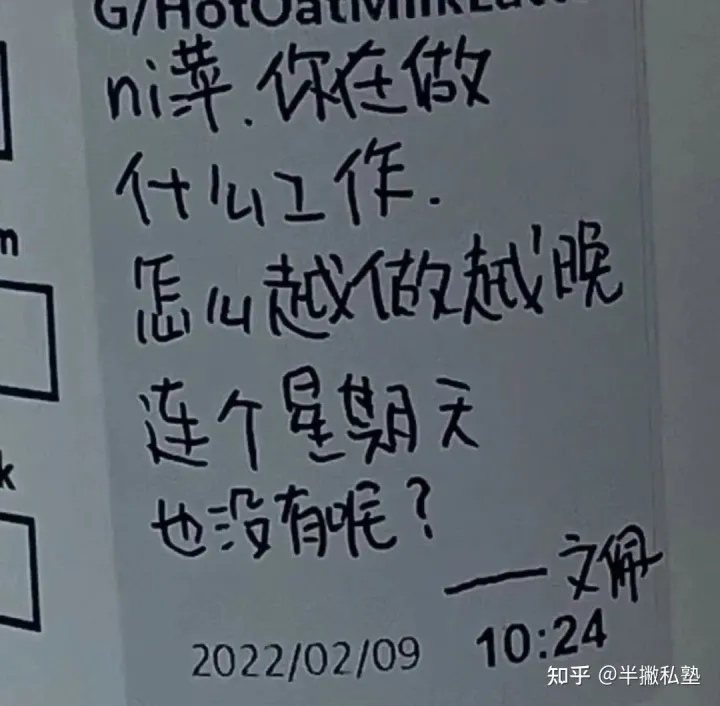 G/HotOatMilkLatte
ni菜.你在做
什么工作.
怎么越做越晚
连个星期天
也没有呢?
——文佩
2022/02/09 10:24
m
k
知乎 @半撇私塾